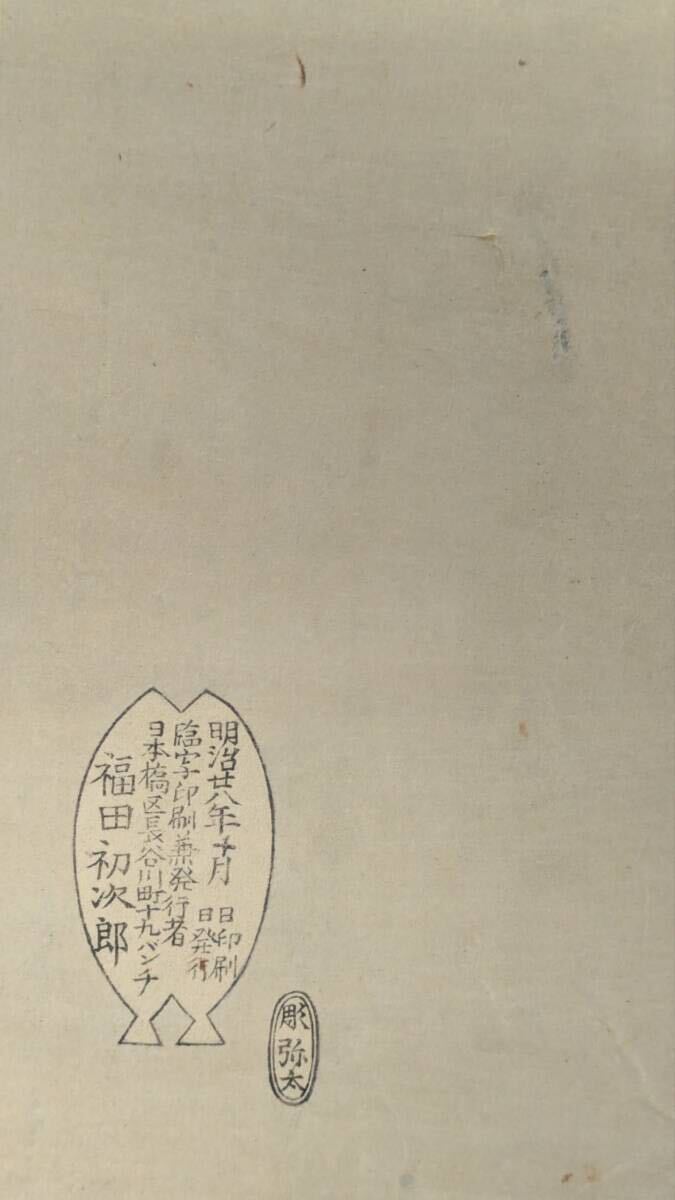 明治廿八年十月
日印刷
日発行
臨写印刷兼発行者
日本橋区長谷川町十九バンチ
福田初次郎
彫弥太